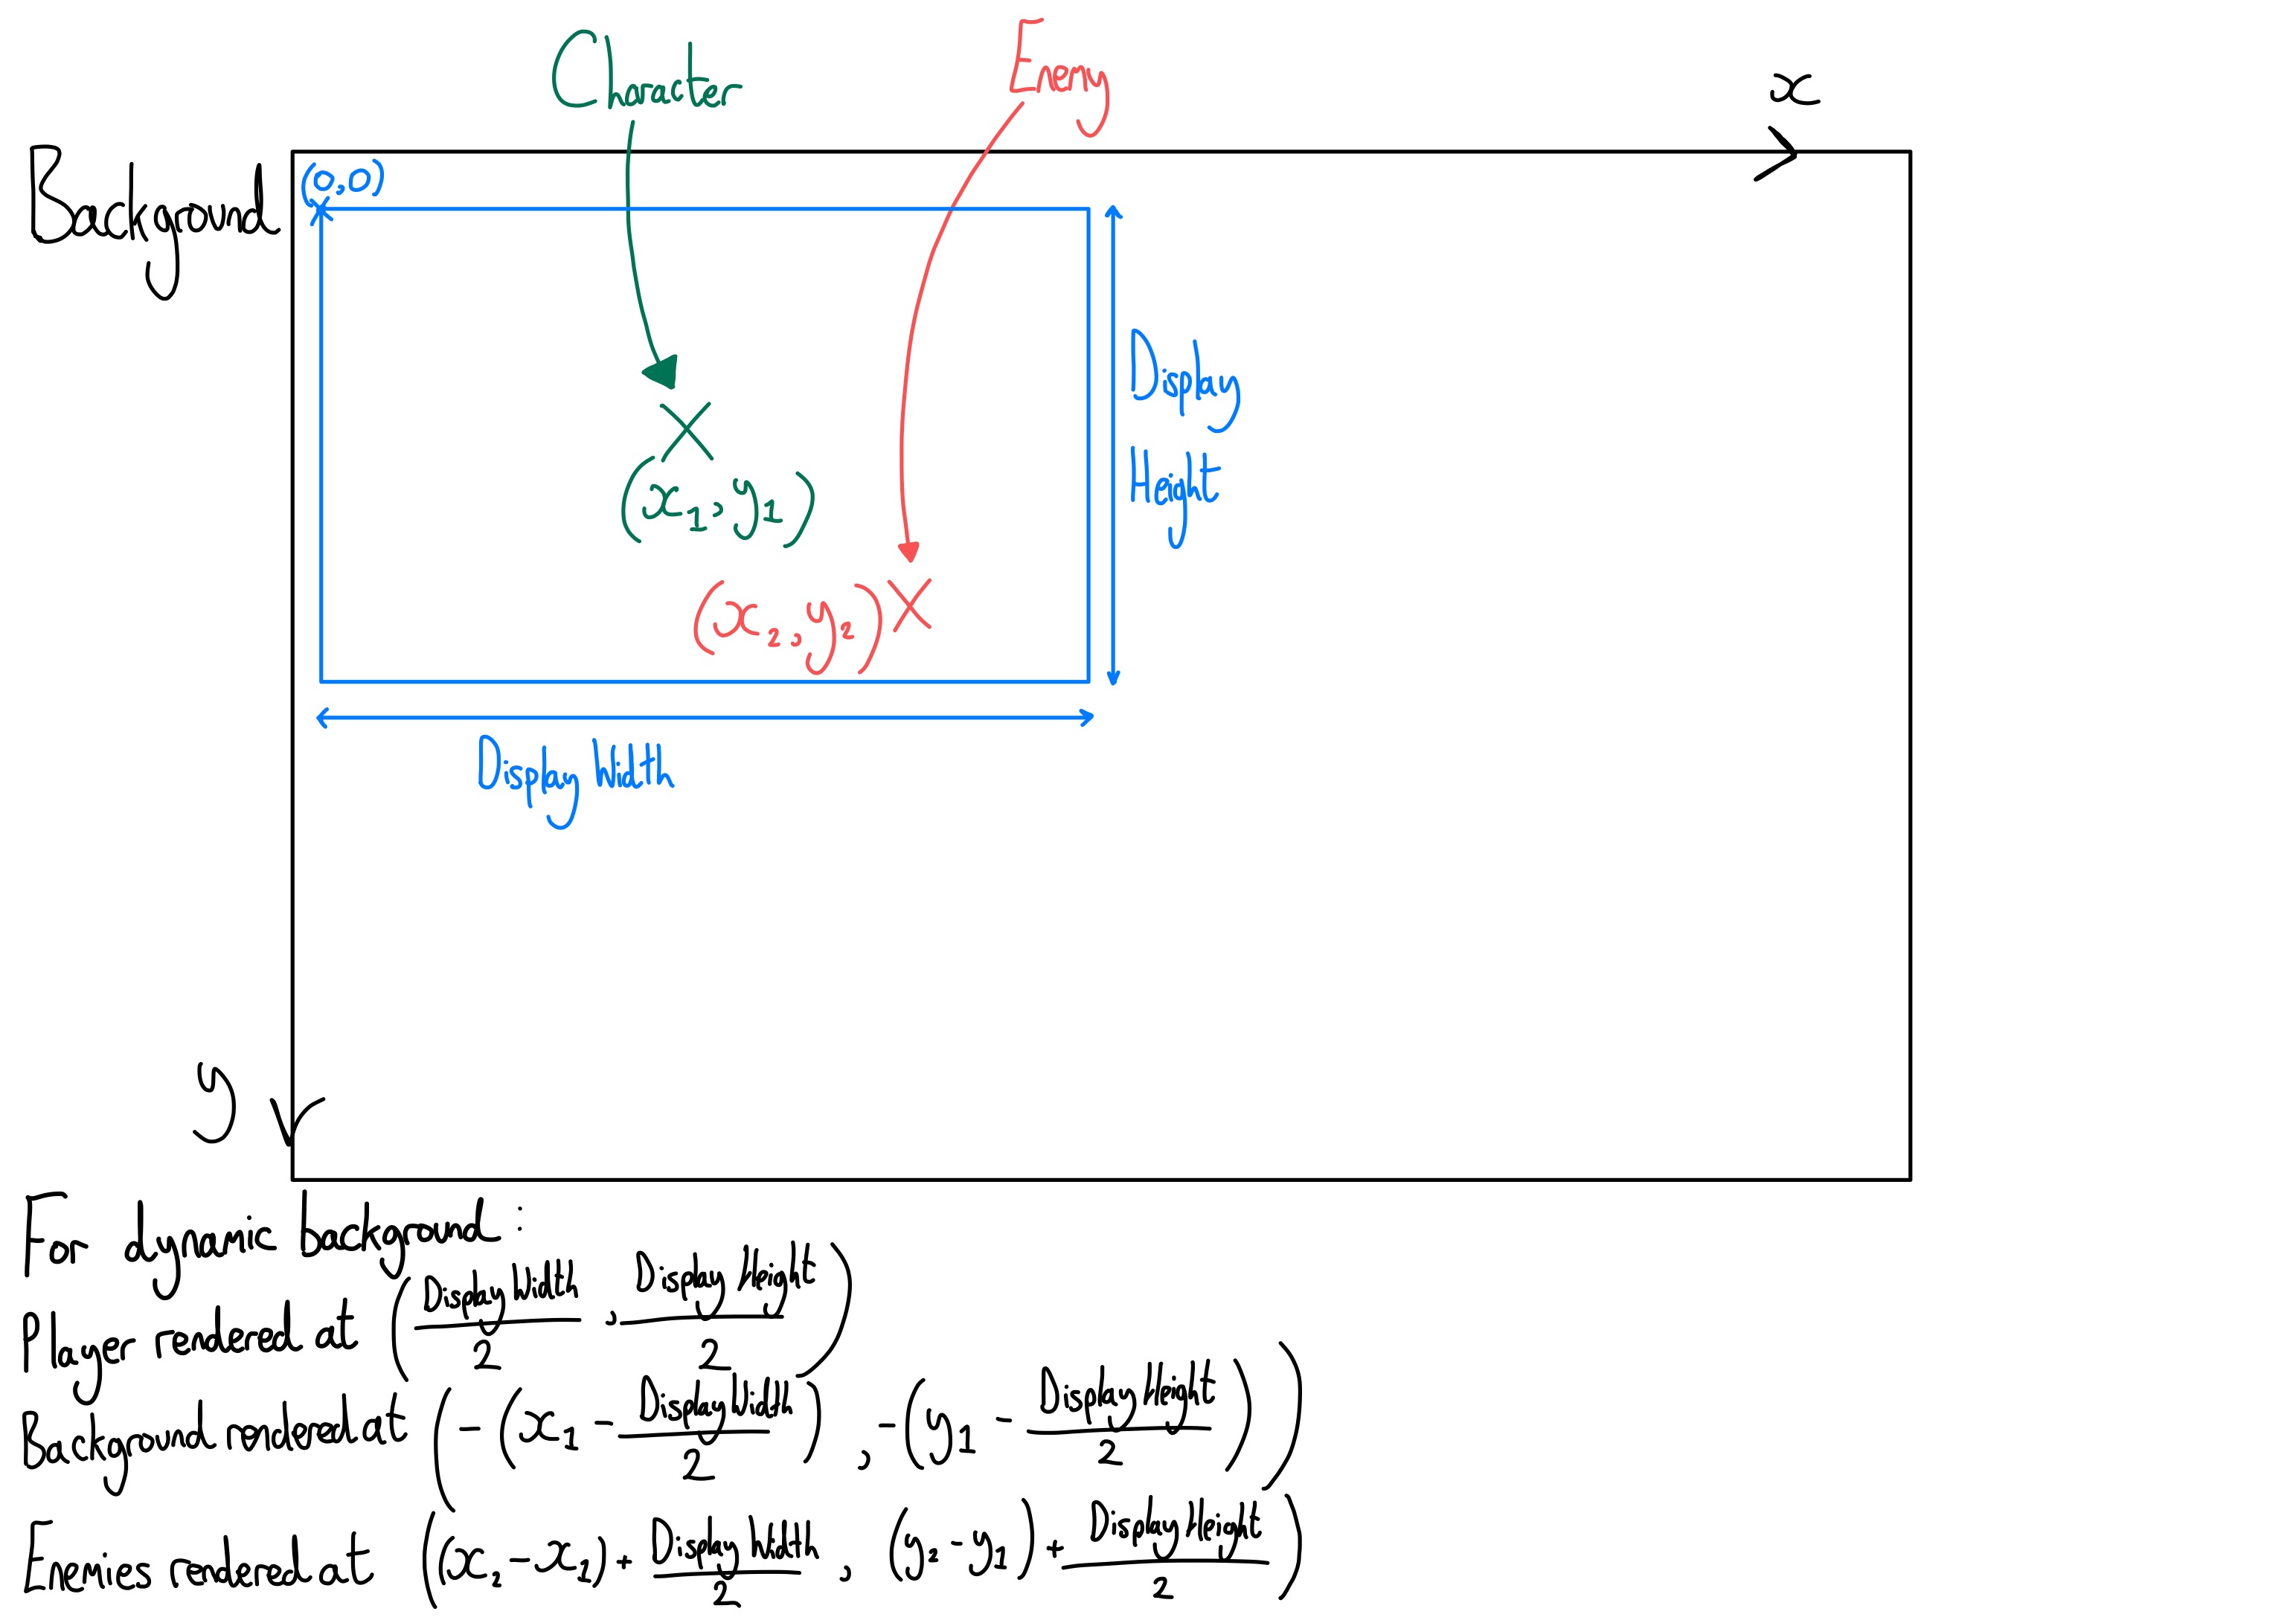 Character
Enemy
x
Background
(0,0)
Display
Height
(x₁,y₁)
(x₂,y₂)
Display Width
y
For dynamic background:
Player rendered at (Display Width/2, Display Height/2)
Background rendered at (-(x₁ - Display Width/2), -(y₁ - Display Height/2))
Enemies rendered at ((x₂-x₁) + Display Width/2, (y₂-y₁) + Display Height/2)